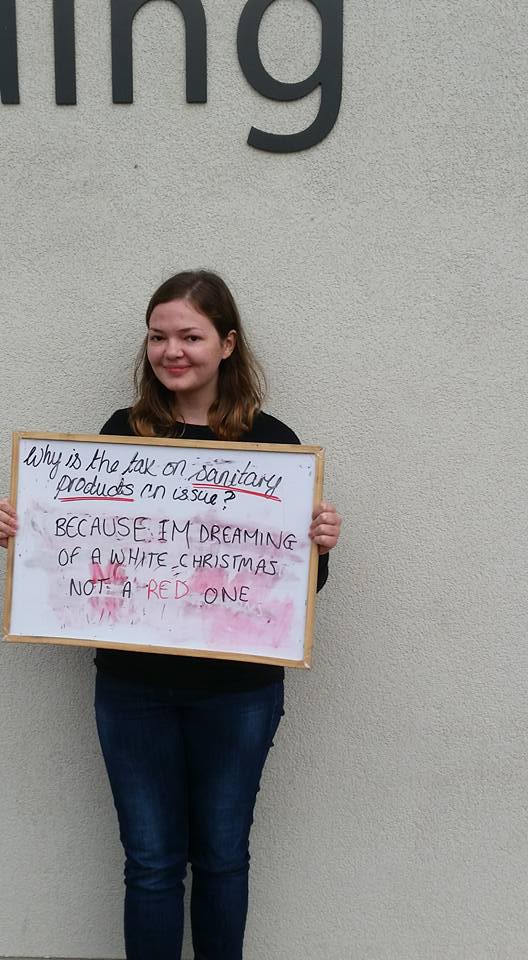 ling
Why is the tax on sanitary
products an issue?
BECAUSE IM DREAMING
OF A WHITE CHRISTMAS
NOT A RED ONE